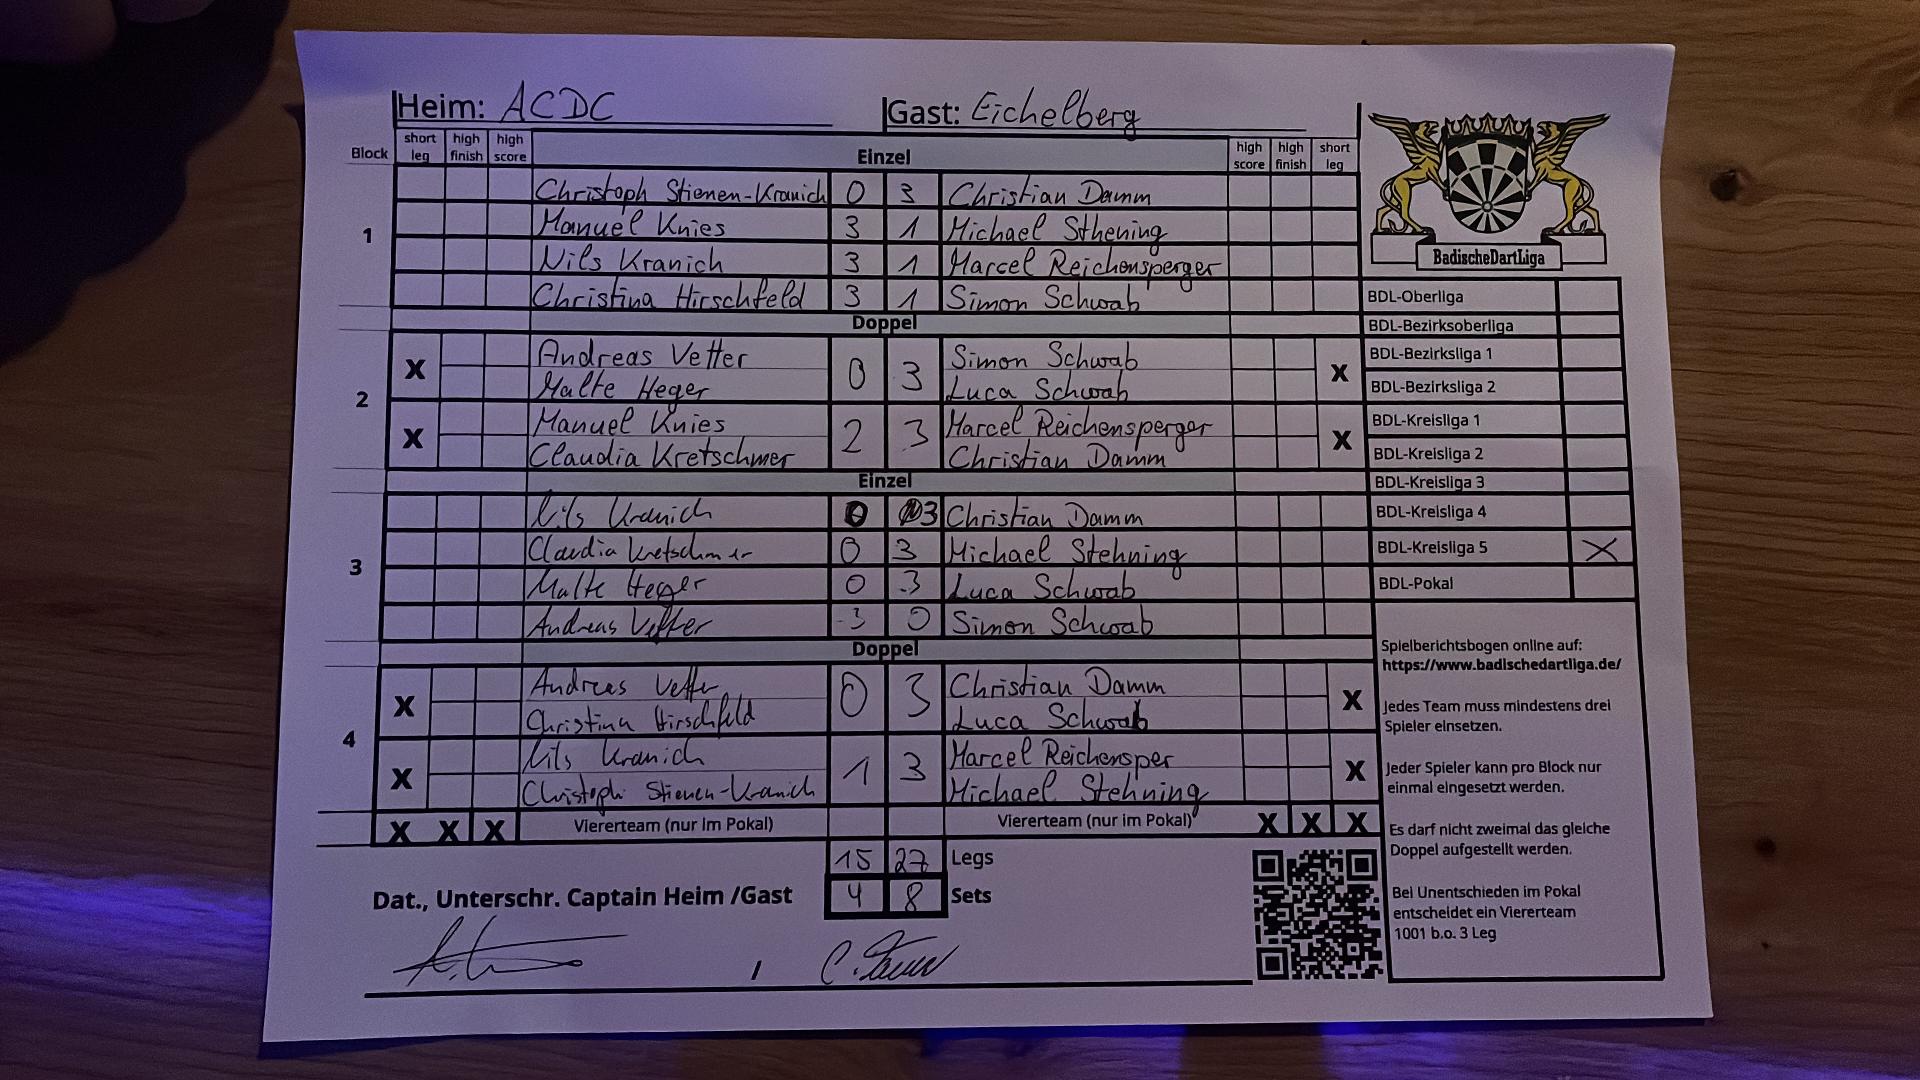 Heim: ACDC Gast: Eichelberg
Block short leg high finish high score Einzel high score high finish short leg
1
Christoph Stienen-Kranich 0 3 Christian Damm
Manuel Knies 3 1 Michael Sthening
Nils Kranich 3 1 Marcel Reichensperger
Christina Hirschfeld 3 1 Simon Schwab
Doppel
2
X Andreas Vetter 0 3 Simon Schwab X
Malte Heger Luca Schwab
X Manuel Knies 2 3 Marcel Reichensperger X
Claudia Kretschmer Christian Damm
Einzel
3
Nils Kranich 0 3 Christian Damm
Claudia Kretschmer 0 3 Michael Stehning
Malte Heger 0 3 Luca Schwab
Andreas Vetter 3 0 Simon Schwab
Doppel
4
X Andreas Vetter 0 3 Christian Damm X
Christina Hirschfeld Luca Schwab
X Nils Kranich 1 3 Marcel Reichensper X
Christoph Stienen-Kranich Michael Stehning
X X X Viererteam (nur im Pokal) Viererteam (nur im Pokal) X X X
15 27 Legs
4 8 Sets
Dat., Unterschr. Captain Heim /Gast
/
BadischeDartLiga
BDL-Oberliga
BDL-Bezirksoberliga
BDL-Bezirksliga 1
BDL-Bezirksliga 2
BDL-Kreisliga 1
BDL-Kreisliga 2
BDL-Kreisliga 3
BDL-Kreisliga 4
BDL-Kreisliga 5 X
BDL-Pokal
Spielberichtsbogen online auf:
https://www.badischedartliga.de/
Jedes Team muss mindestens drei
Spieler einsetzen.
Jeder Spieler kann pro Block nur
einmal eingesetzt werden.
Es darf nicht zweimal das gleiche
Doppel aufgestellt werden.
Bei Unentschieden im Pokal
entscheidet ein Viererteam
1001 b.o. 3 Leg